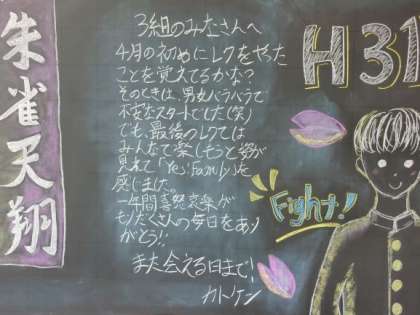 朱雀天翔
3組のみなさんへ
4月の初めにレクをやった
ことを覚えてるかな?
そのときは、男女バラバラで
不安なスタートでした(笑)
でも、最後のレクでは
みんなで楽しもうと姿が
見れて「Yes! Family」を
感じました。
一年間喜怒哀楽が
もりだくさんの毎日をあり
がとう!!
また会える日まで!
カトケン
H31
Fight!